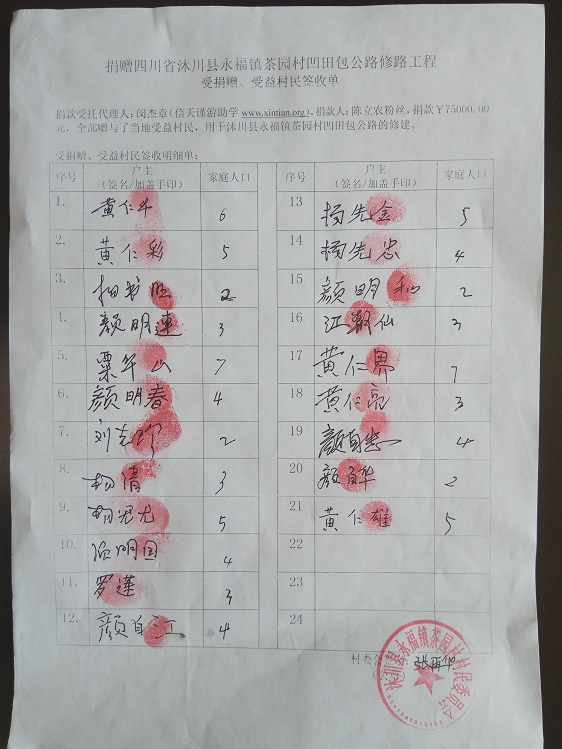 捐赠四川省沐川县永福镇茶园村凹田包公路修路工程
受捐赠、受益村民签收单
捐款受托代理人：闵杰章（信天谨游助学 www.xintian.org），捐款人：陈立农粉丝，捐款￥75000.00
元，全部赠与了当地受益村民，用于沐川县永福镇茶园村凹田包公路的修建。
受捐赠、受益村民签收明细单：
序号 户主（签名/加盖手印） 家庭人口
1. 黄仁斗 6
2. 黄仁彩 5
3. 2
4. 颜明连 3
5. 粟华山 7
6. 颜明春 4
7. 刘志珍 2
8. 杨倩 3
9. 5
10. 4
11. 罗莲 3
12. 颜自江 4
序号 户主（签名/加盖手印） 家庭人口
13 杨先金 5
14 杨先忠 4
15 颜明和 2
16 江朝仙 3
17 黄仁界
18 黄仁亮 3
19 颜自忠 4
20 颜自华 2
21 黄仁雄 5
22
23
24
村委会
沐川县永福镇茶园村村民委员会